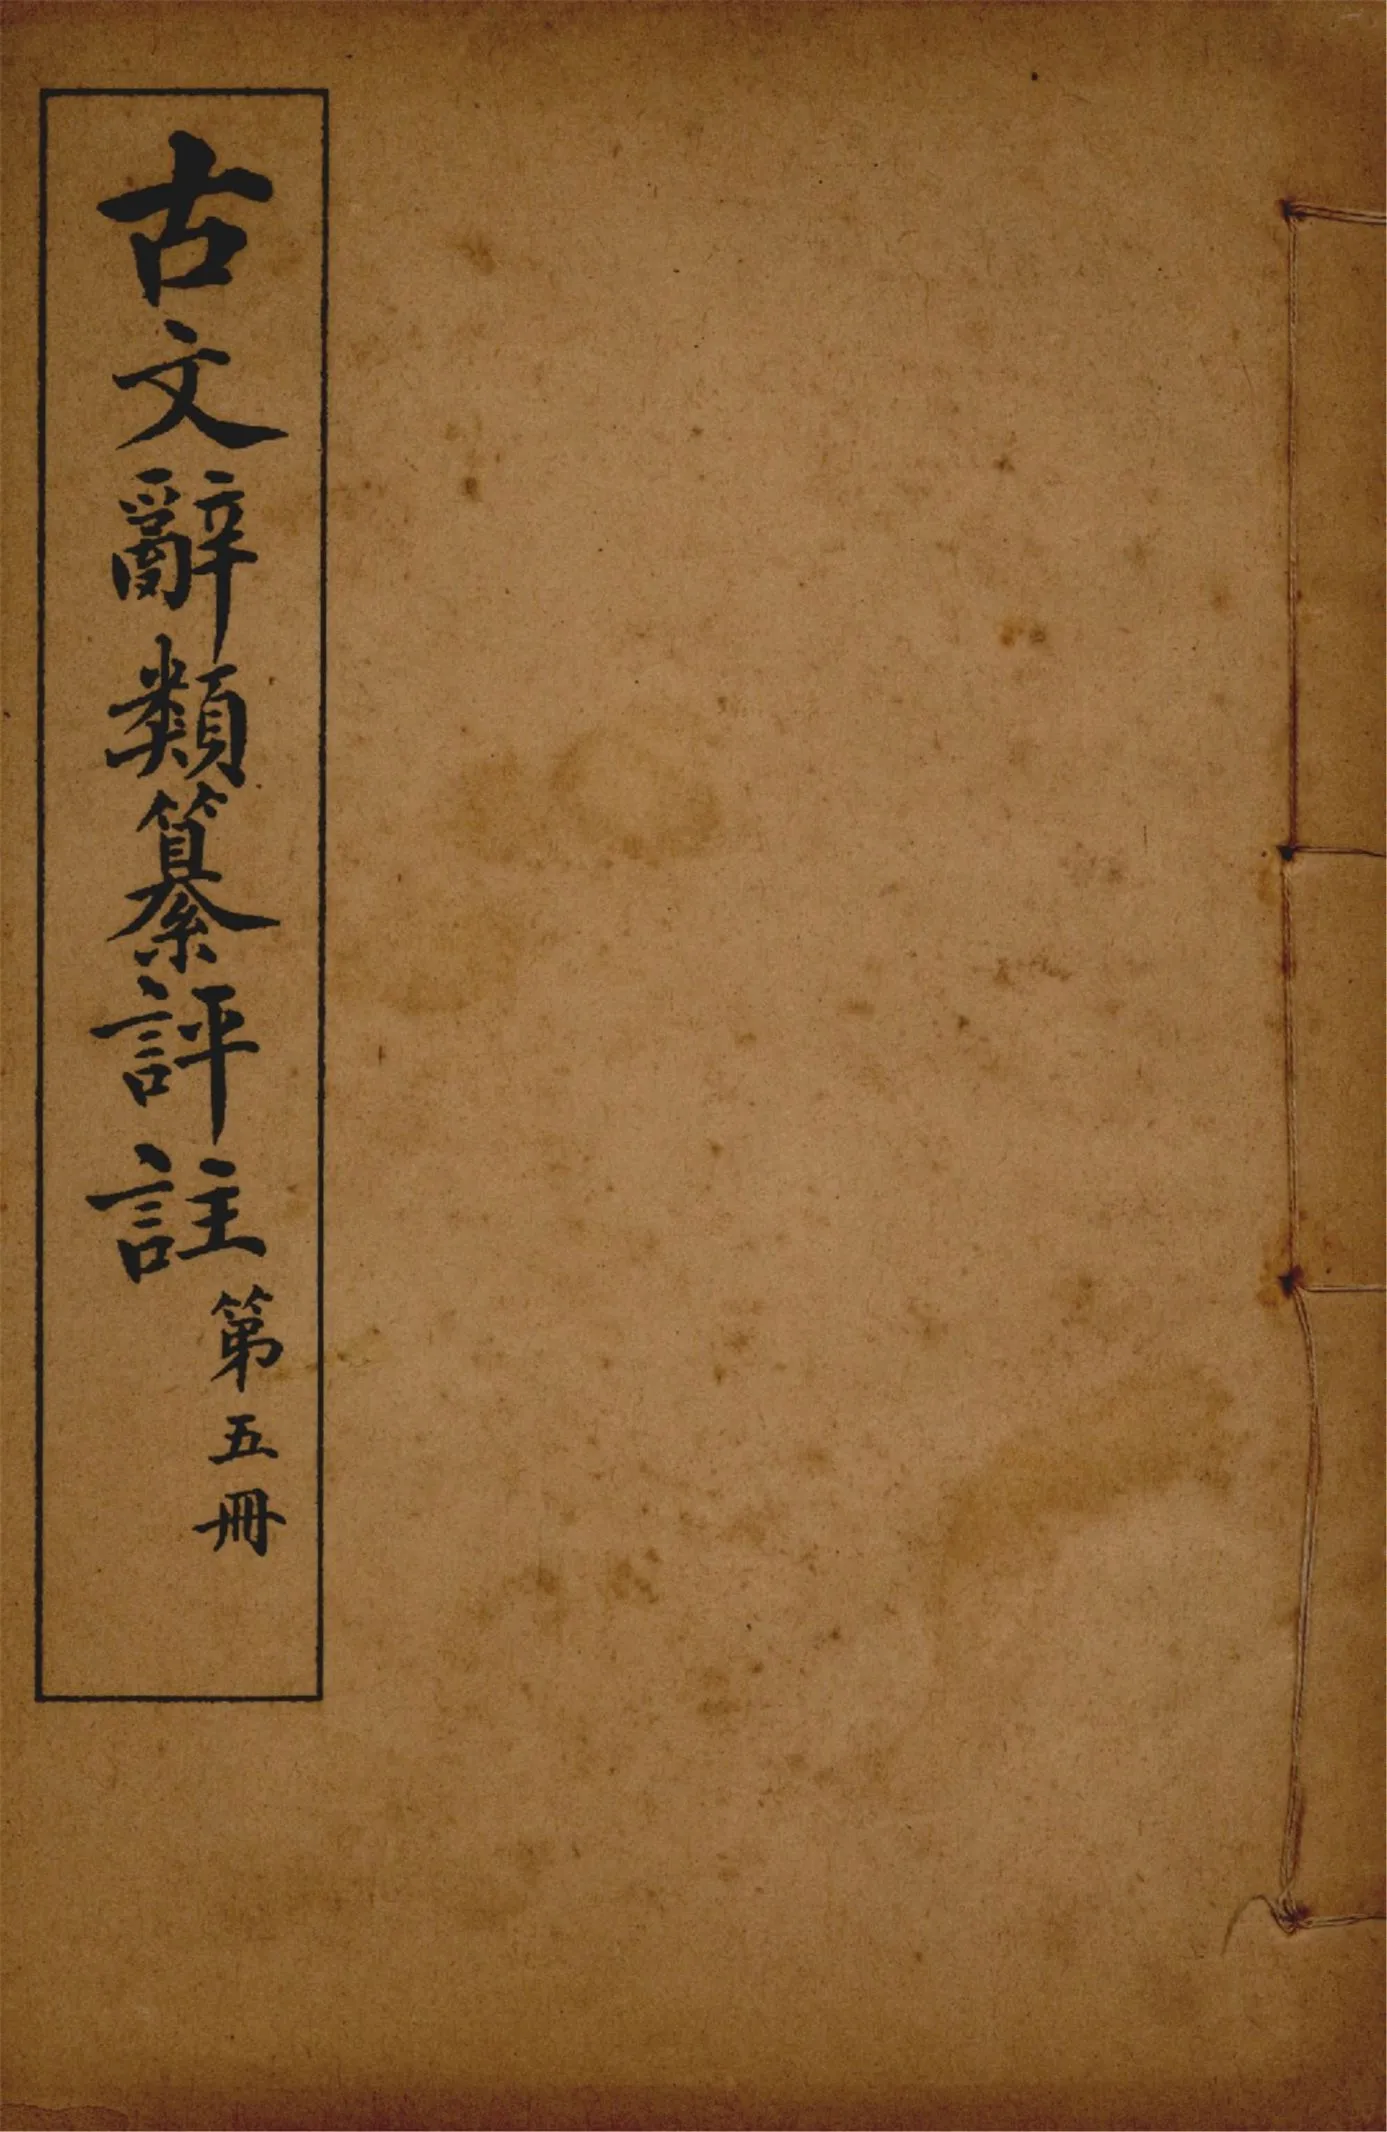 古文辭類纂評註
第五冊